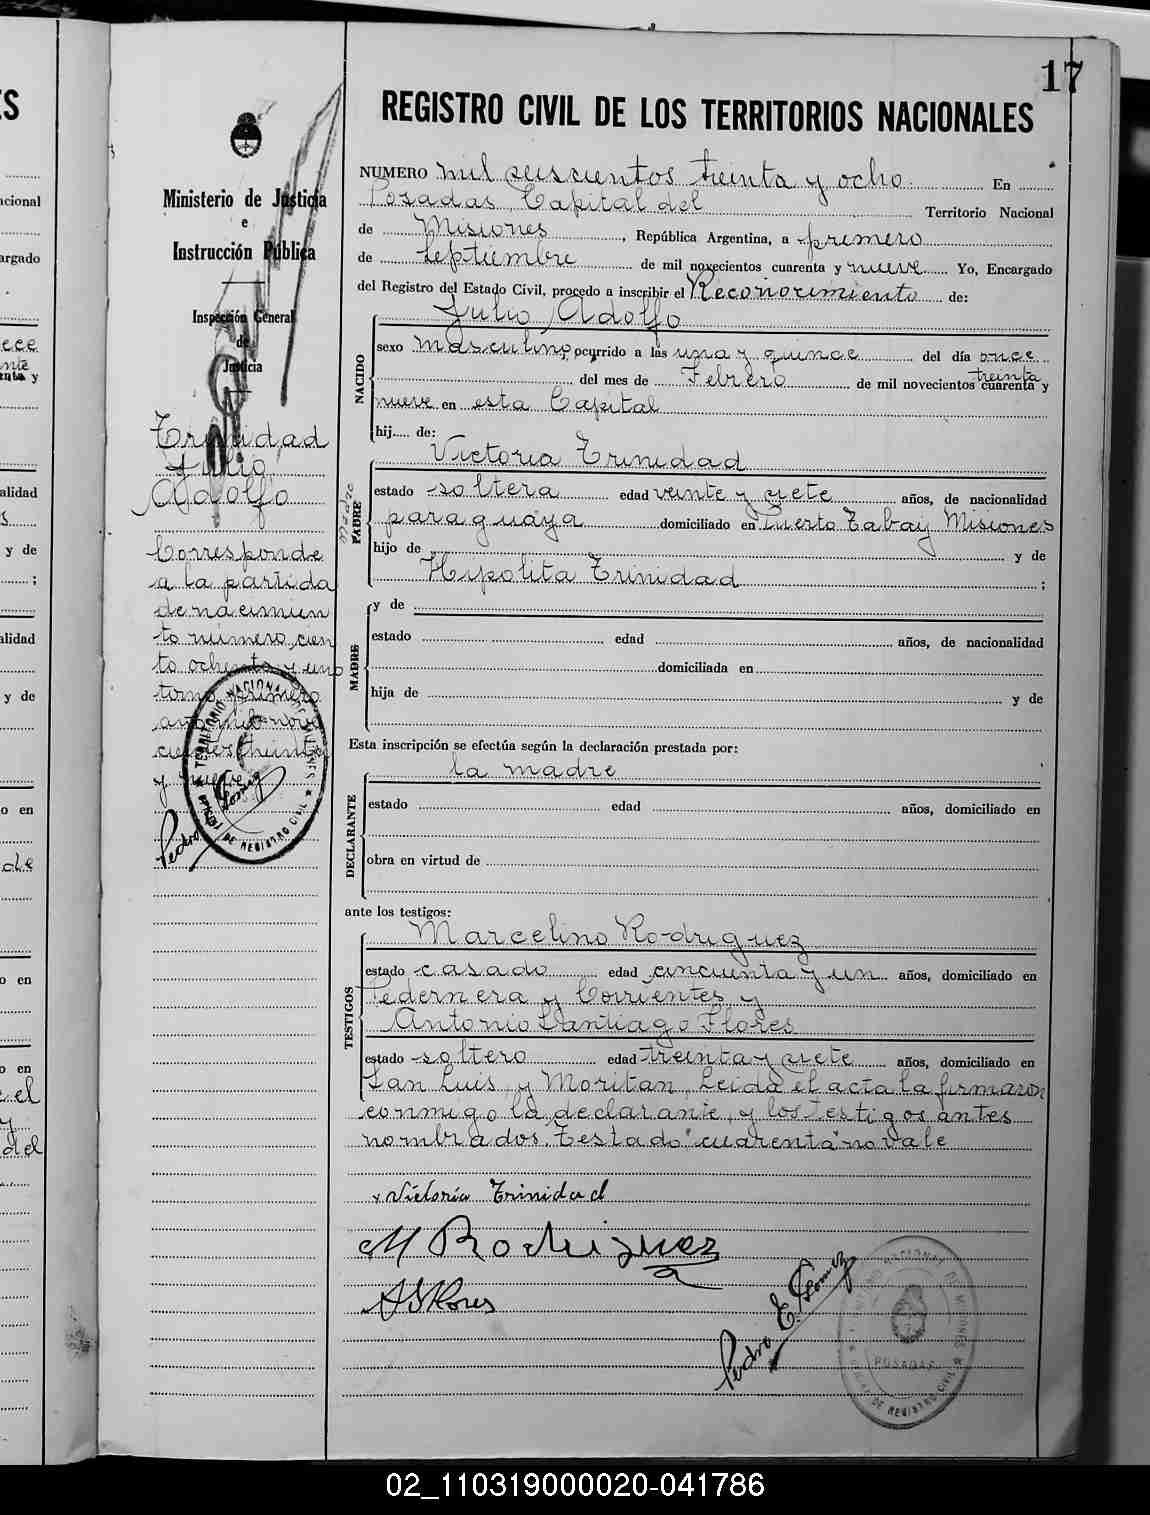 17
REGISTRO CIVIL DE LOS TERRITORIOS NACIONALES
Ministerio de Justicia
e
Instrucción Pública
Inspección General
de
Justicia
Trinidad
Julio
Adolfo
Corresponde
a la partida
de nacimien
to número cien
to ochenta y uno
tomo primero
año mil nove
cientos treinta
y nueve
Pedro E. Gomez
TERRITORIO NACIONAL DE MISIONES
OFICINA DE REGISTRO CIVIL
NUMERO mil seiscientos treinta y ocho En
Posadas, Capital del Territorio Nacional
de Misiones, República Argentina, a primero
de septiembre de mil novecientos cuarenta y nueve Yo, Encargado
del Registro del Estado Civil, procedo a inscribir el Reconocimiento de:
Julio Adolfo
NACIDO
sexo masculino ocurrido a las una y quince del día once
del mes de Febrero de mil novecientos cuarenta treinta y
nueve en esta Capital
hij de:
Victoria Trinidad
PADRE Madre
estado soltera edad veinte y siete años, de nacionalidad
paraguaya domiciliado en Puerto Tabay Misiones
hijo de y de
Hipolita Trinidad ;
MADRE
y de
estado edad años, de nacionalidad
domiciliada en
hija de y de
Esta inscripción se efectúa según la declaración prestada por:
la madre
DECLARANTE
estado edad años, domiciliado en
obra en virtud de
ante los testigos:
Marcelino Rodriguez
TESTIGOS
estado casado edad cincuenta y un años, domiciliado en
Pedernera y Corrientes y
Antonio Santiago Flores
estado soltero edad treinta y siete años, domiciliado en
San Luis y Moritan. Leida el acta la firmaron
conmigo la declarante, y los testigos antes
nombrados. Testado "cuarenta" no vale
x Victoria Trinidad
M Rodriguez
A S Flores
Pedro E. Gomez
TERRITORIO NACIONAL DE MISIONES
POSADAS
OFICINA DE REGISTRO CIVIL
02_110319000020-041786